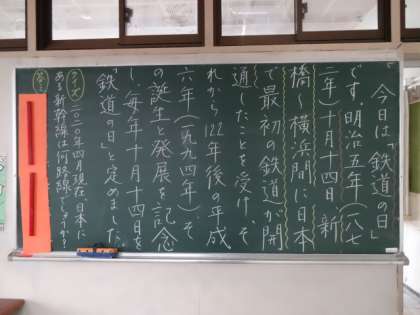 今日は「鉄道の日」
です。明治五年(一八七
二年)十月十四日、新
橋〜横浜間に日本
で最初の鉄道が開
通したことを受け、そ
れから122年後の平成
六年(一九九四年)、そ
の誕生と発展を記念
し、毎年十月十四日を
「鉄道の日」と定めました。
クイズ 二〇二〇年四月現在、日本に
ある新幹線は何路線でしょうか?
答え